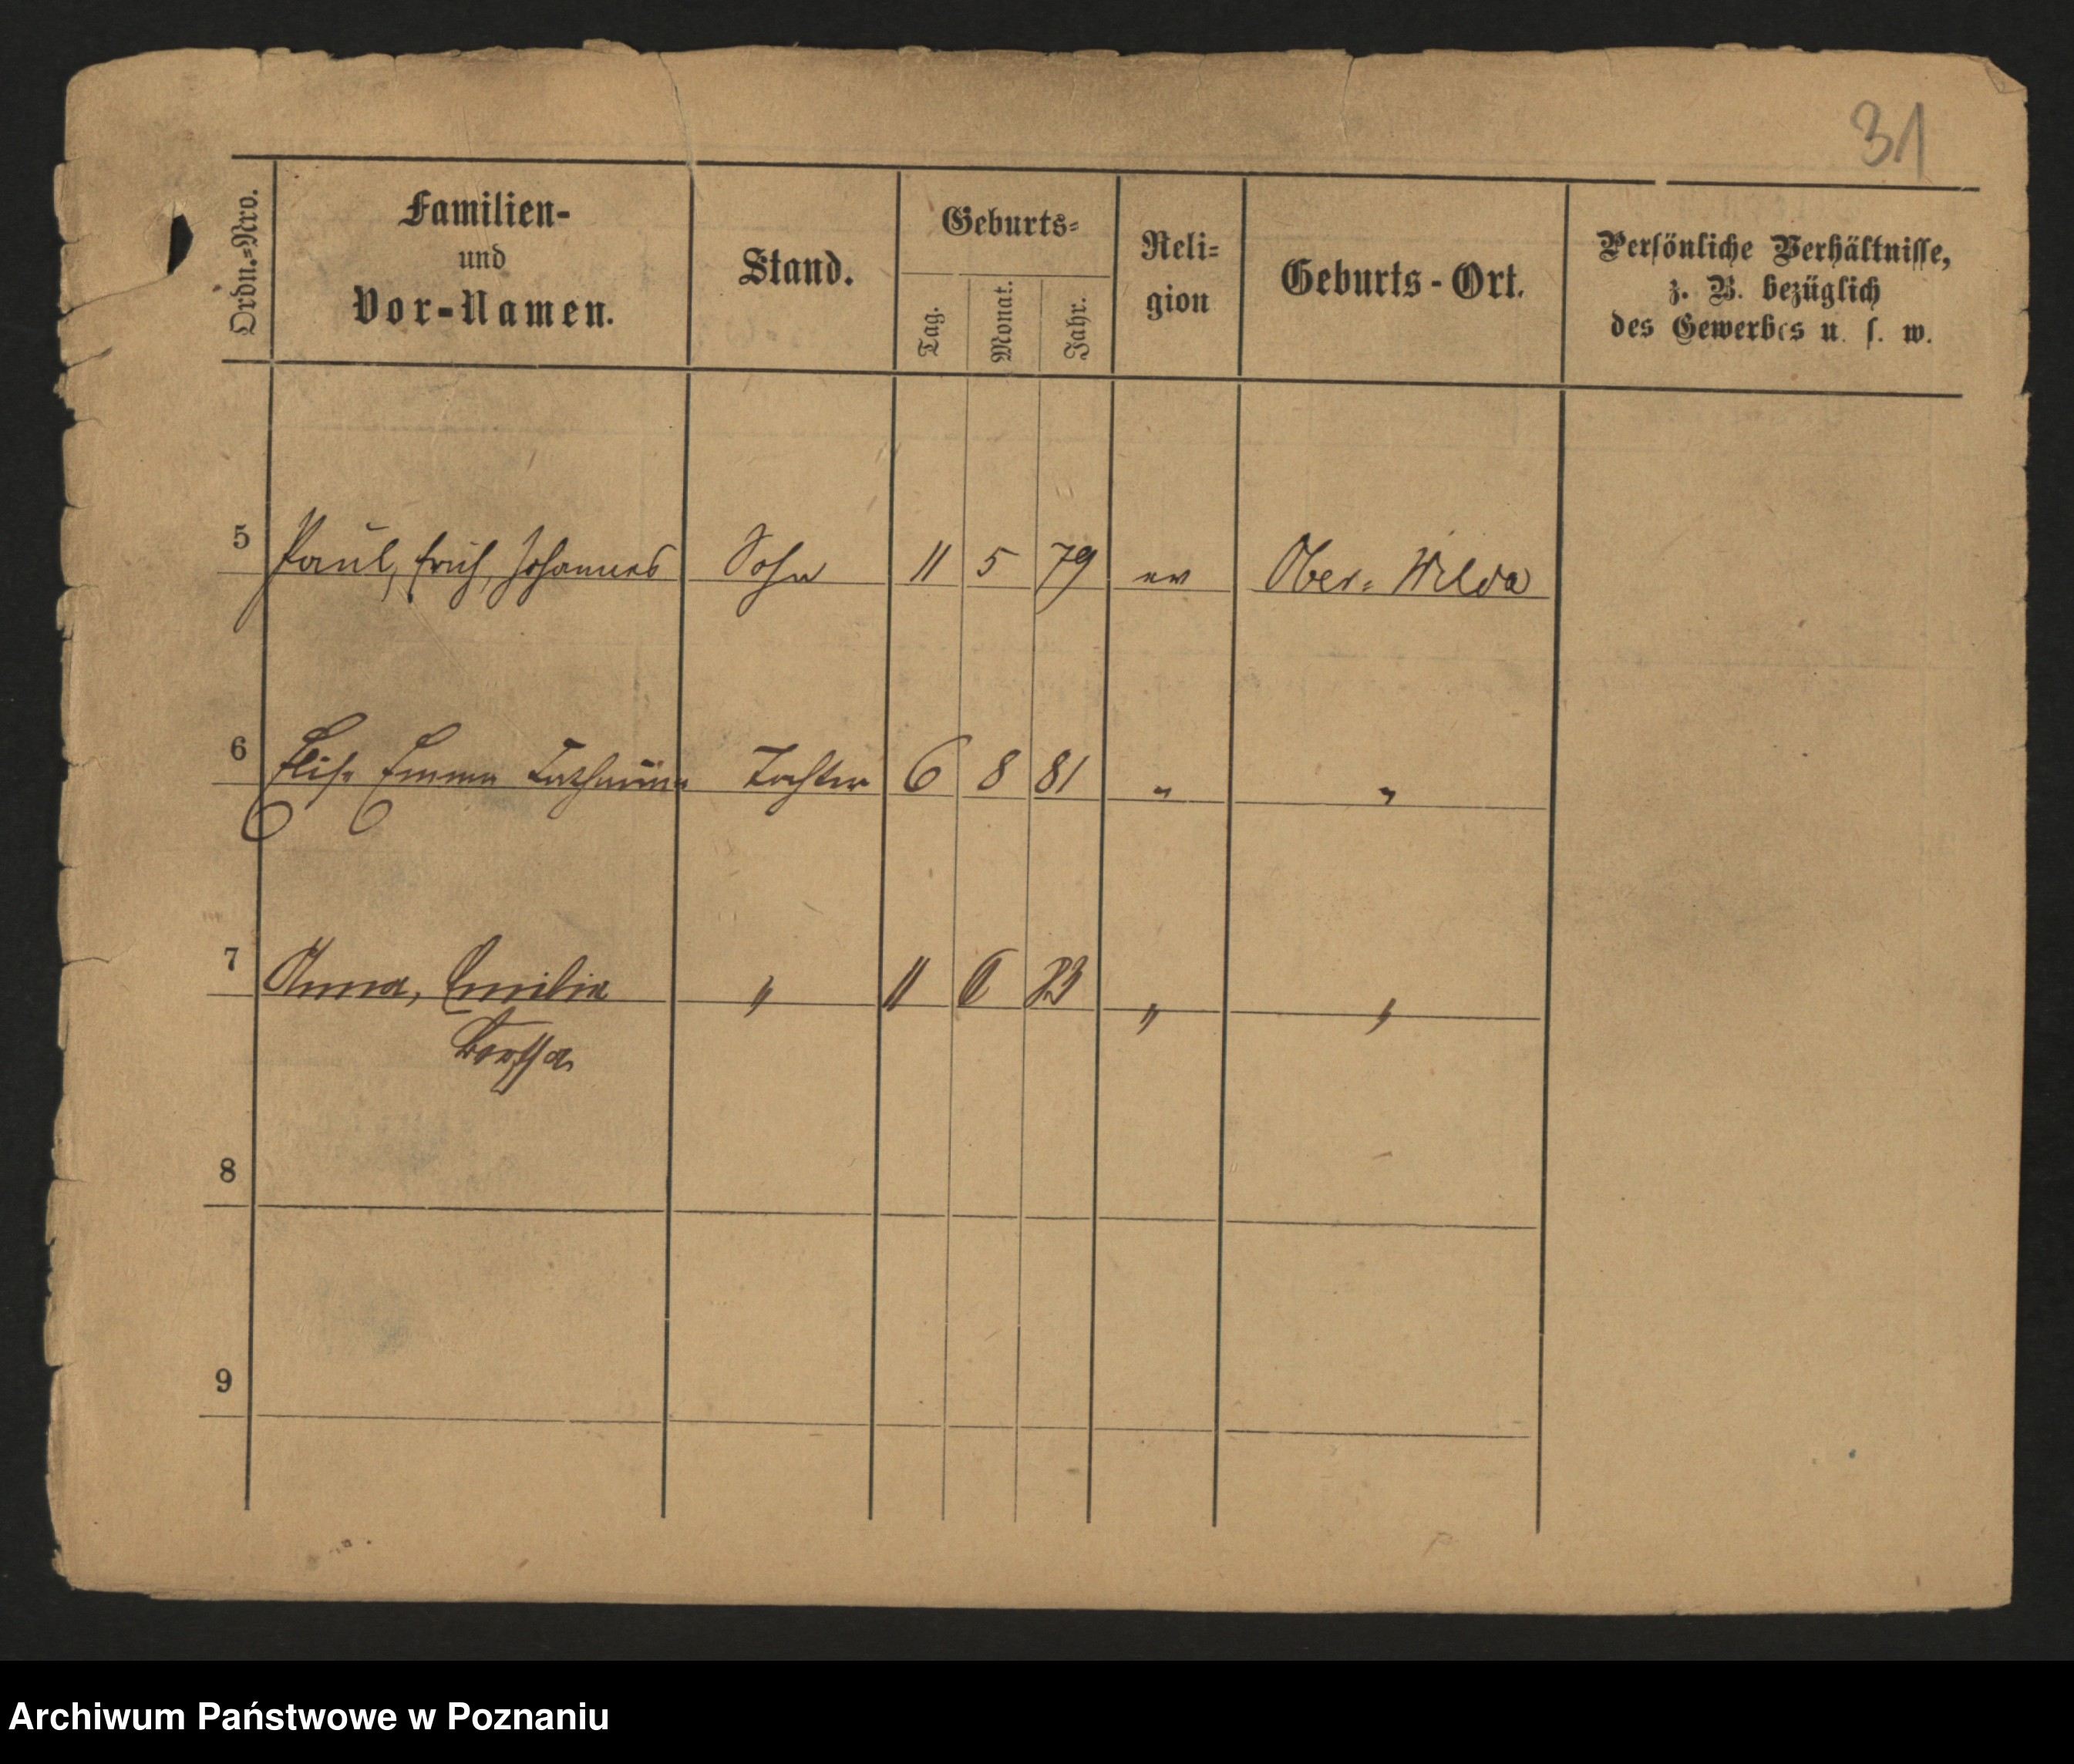 31
Ordn.=Nro.
Familien-
und
Vor-Namen.
Stand.
Geburts=
Tag.
Monat.
Jahr.
Reli=
gion
Geburts-Ort.
Persönliche Verhältnisse,
z. B. bezüglich
des Gewerbes u. s. w.
5 Paul, Erich, Johannes Sohn 11 5 79 ev Ober= Wilda
6 Elise Emma Tochter 6 8 81 " "
7 Anna, Emilia " 11 6 83 " "
Bertha
8
9
Archiwum Państwowe w Poznaniu